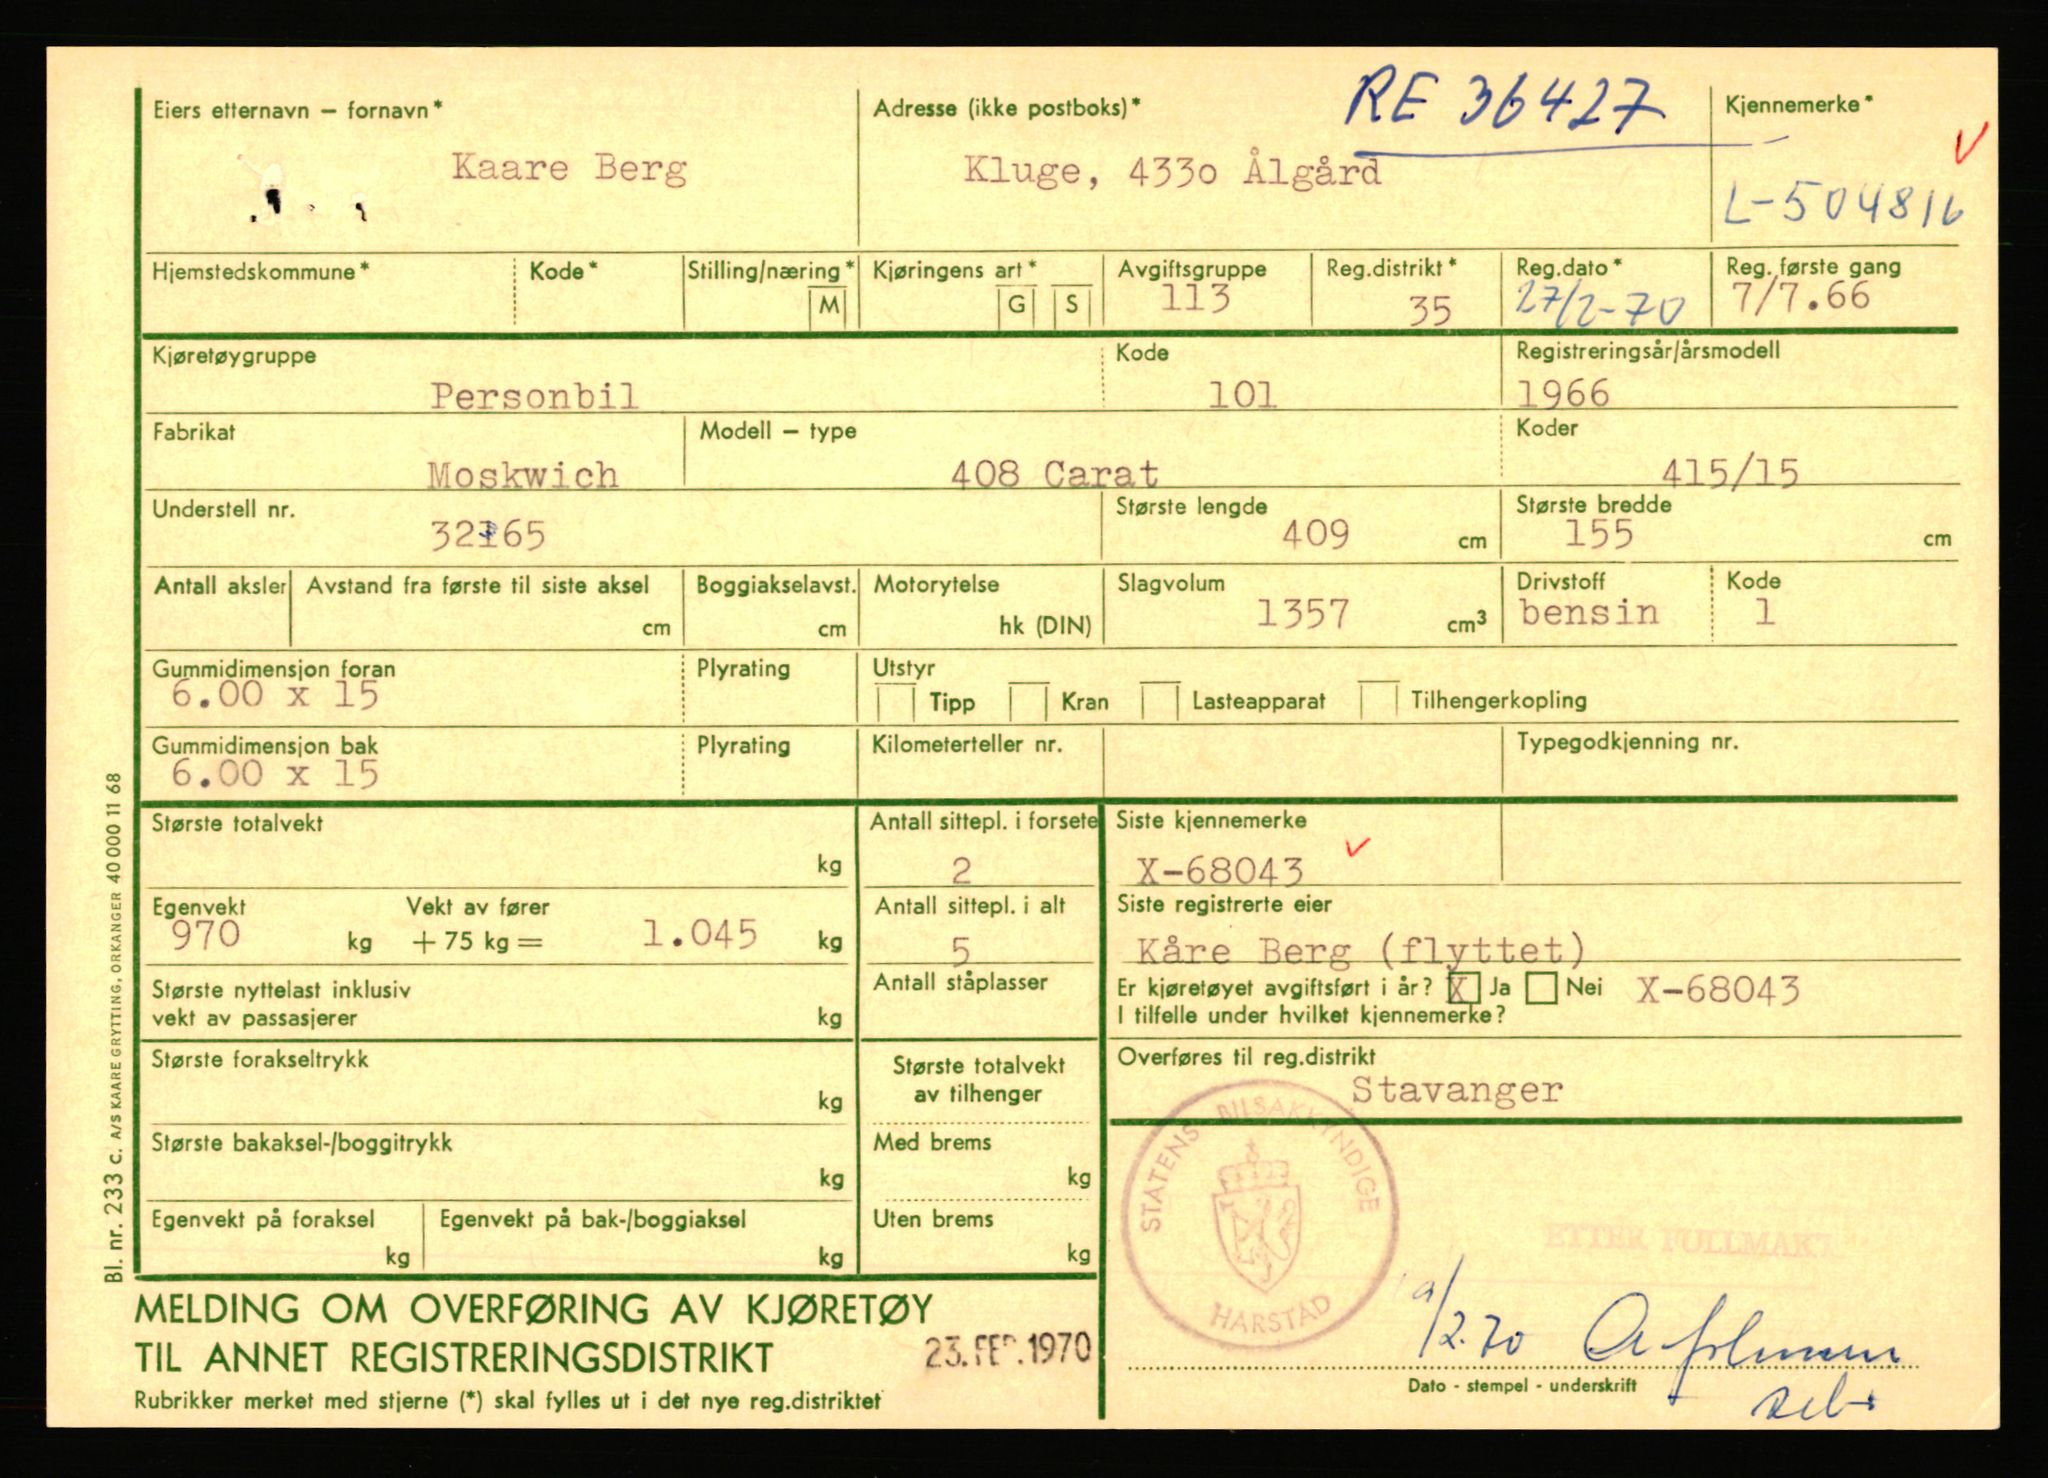 RE 36427
Eiers etternavn – fornavn*
Adresse (ikke postboks)*
Kjennemerke*
Kaare Berg
Kluge, 4330 Ålgård
L-504816
Hjemstedskommune*
Kode*
Stilling/næring*
M
Kjøringens art*
G
S
Avgiftsgruppe
113
Reg.distrikt*
35
Reg.dato*
27/2-70
Reg. første gang
7/7.66
Kjøretøygruppe
Personbil
Kode
101
Registreringsår/årsmodell
1966
Fabrikat
Moskwich
Modell – type
408 Carat
Koder
415/15
Understell nr.
Største lengde
409 cm
Største bredde
155 cm
Antall aksler
Avstand fra første til siste aksel
cm
Boggiakselavst.
cm
Motorytelse
hk (DIN)
Slagvolum
1357 cm3
Drivstoff
bensin
Kode
1
Gummidimensjon foran
6.00 x 15
Plyrating
Utstyr
Tipp
Kran
Lasteapparat
Tilhengerkopling
Gummidimensjon bak
6.00 x 15
Plyrating
Kilometerteller nr.
Typegodkjenning nr.
Største totalvekt
kg
Antall sittepl. i forsete
2
Siste kjennemerke
X-68043
Egenvekt
970 kg
Vekt av fører
+ 75 kg = 1.045 kg
Antall sittepl. i alt
5
Siste registrerte eier
Kåre Berg (flyttet)
Største nyttelast inklusiv
vekt av passasjerer
kg
Antall ståplasser
Er kjøretøyet avgiftsført i år? X Ja Nei X-68043
I tilfelle under hvilket kjennemerke?
Største forakseltrykk
kg
Største totalvekt
av tilhenger
Overføres til reg.distrikt
Stavanger
Største bakaksel-/boggitrykk
kg
Med brems
kg
Egenvekt på foraksel
kg
Egenvekt på bak-/boggiaksel
kg
Uten brems
kg
STATENS BILSAKKYNDIGE
HARSTAD
ETTER FULLMAKT
/2.70
Dato - stempel - underskrift
MELDING OM OVERFØRING AV KJØRETØY
TIL ANNET REGISTRERINGSDISTRIKT
23. FEB. 1970
Rubrikker merket med stjerne (*) skal fylles ut i det nye reg.distriktet
Bl. nr. 233 c. A/S KAARE GRYTTING, ORKANGER 40 000 11 68